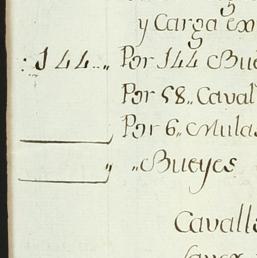 y Carga ex
:144..,, Por 144 Bue
Por 58,, Caval
Por 6,, Mulas
,, ,,Bueyes
Cavalle